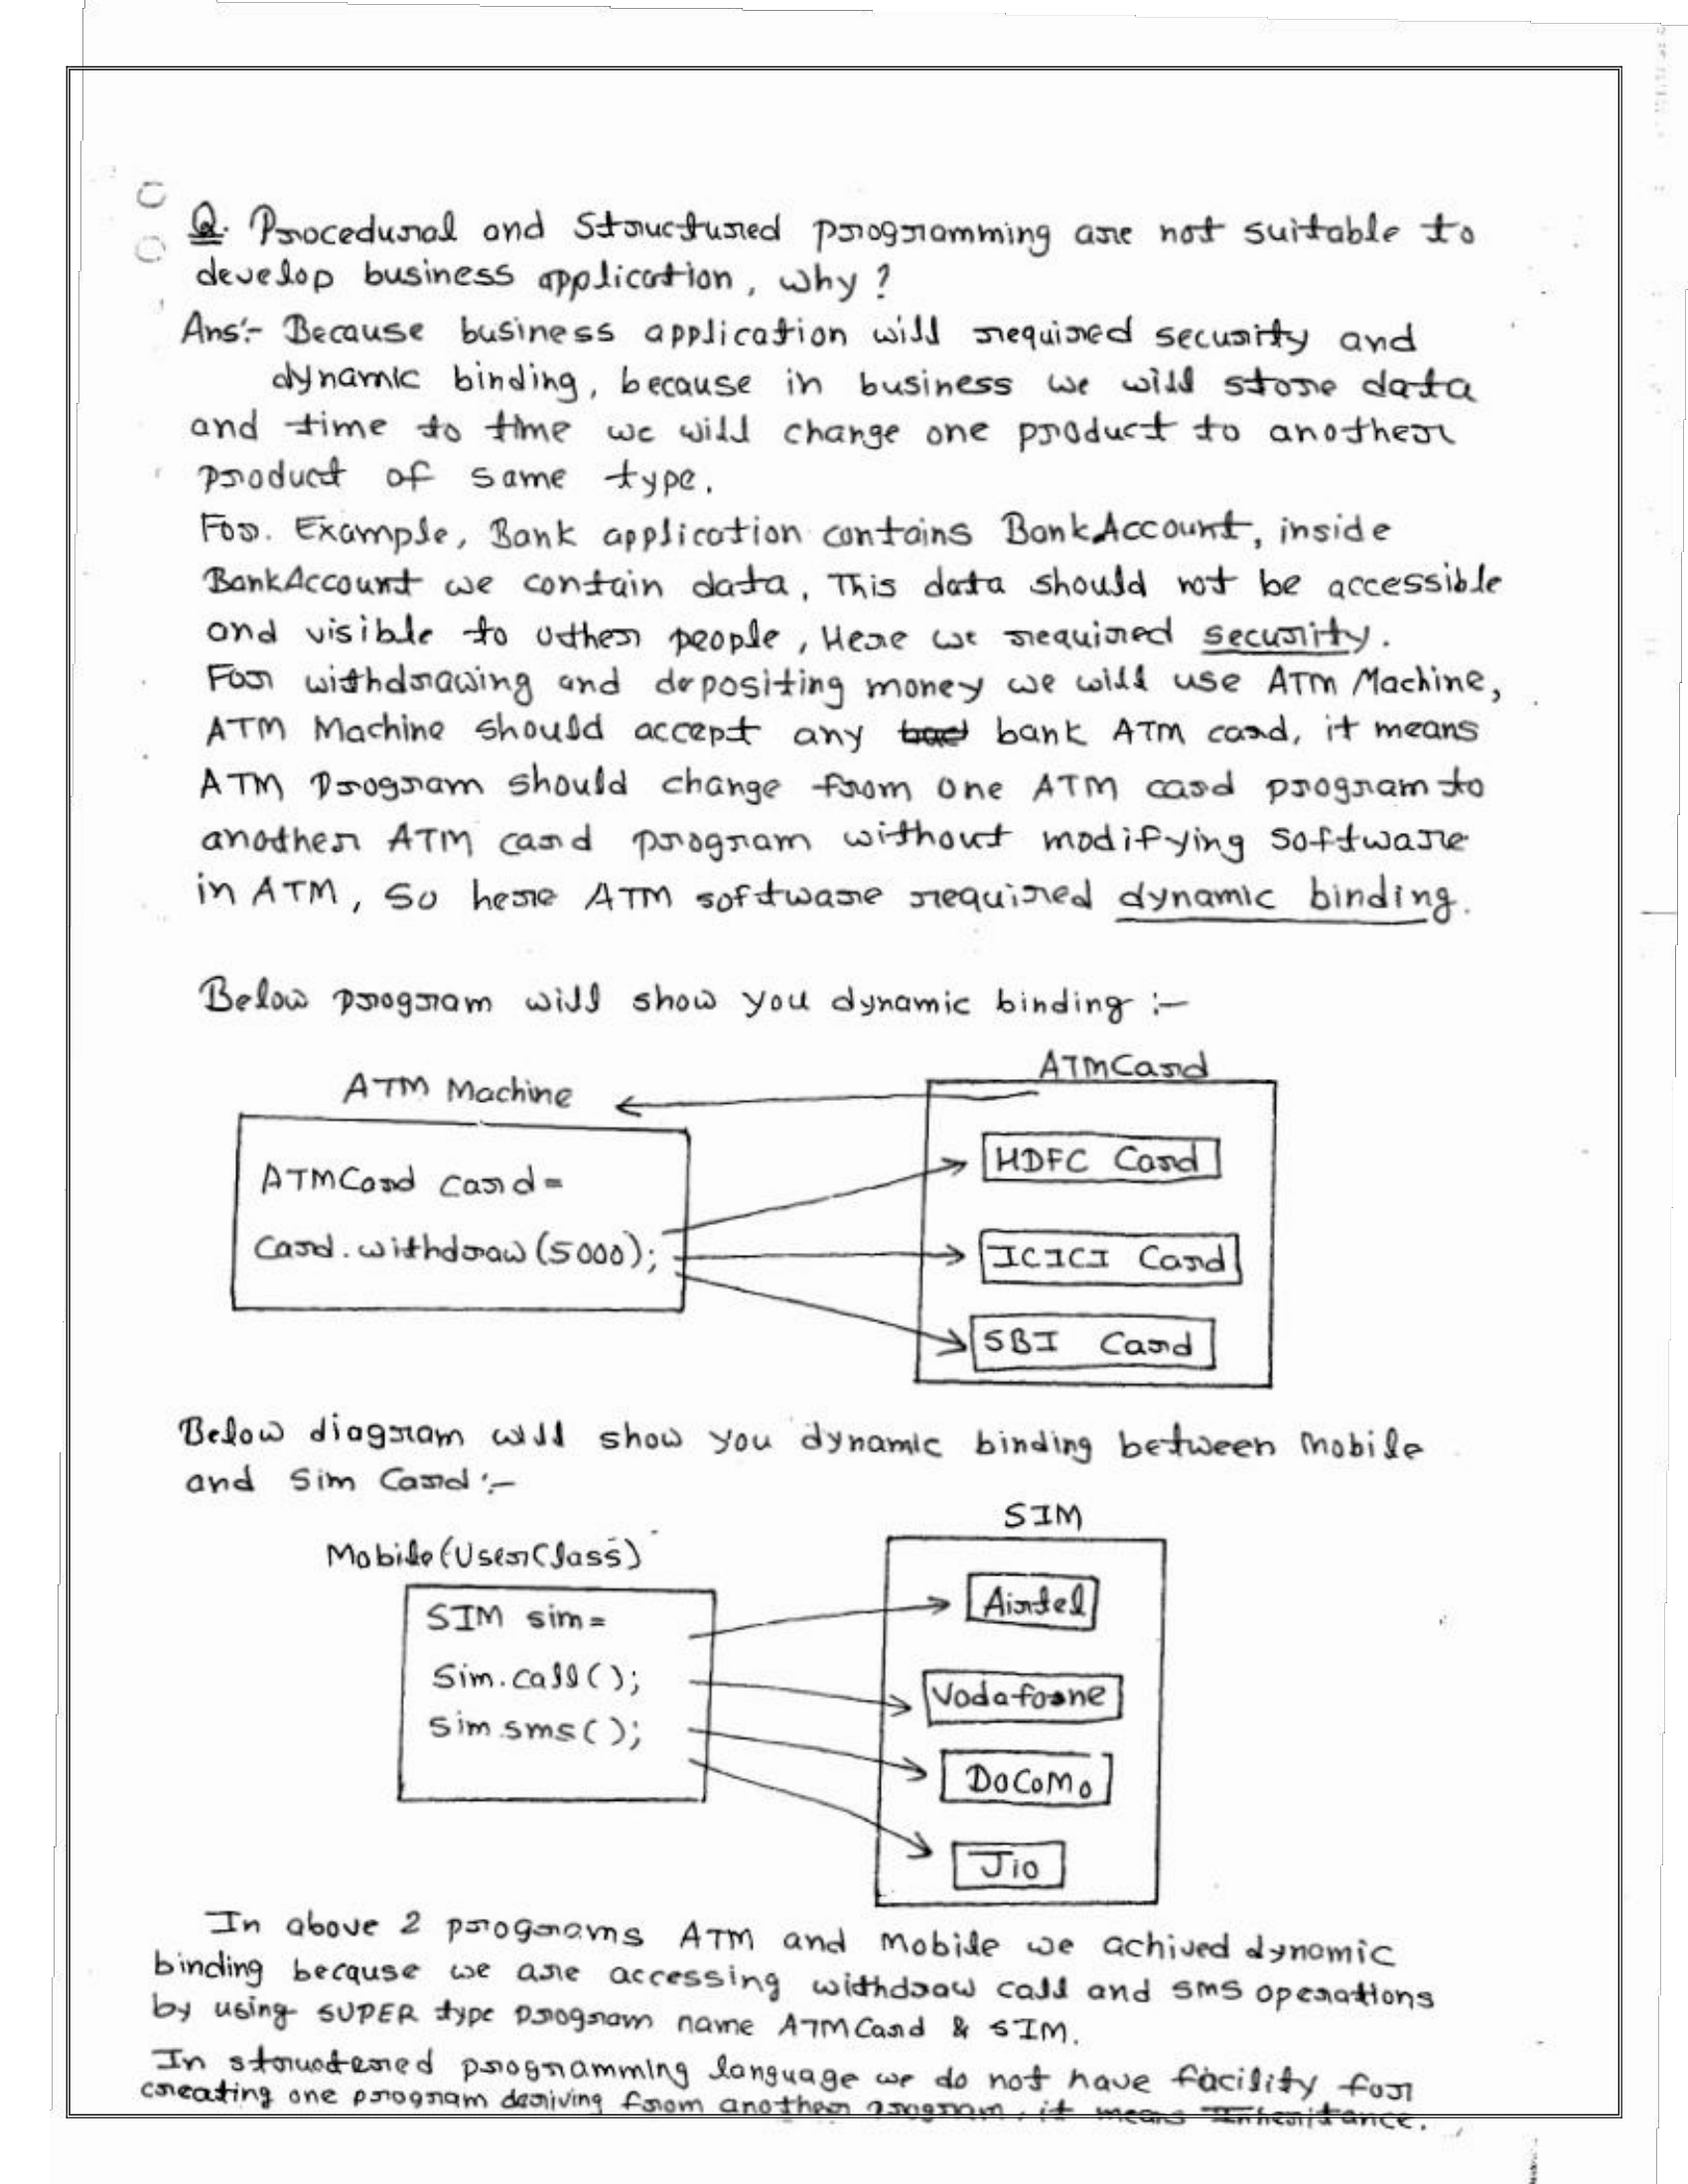 Q. Procedural and Structured programming are not suitable to
develop business application, why?
Ans:- Because business application will required security and
dynamic binding, because in business we will store data
and time to time we will change one product to another
product of same type.
For. Example, Bank application contains BankAccount, inside
BankAccount we contain data, This data should not be accessible
and visible to other people, Here we required security.
For withdrawing and depositing money we will use ATM Machine,
ATM Machine should accept any bank ATM card, it means
ATM Program should change from one ATM card program to
another ATM card program without modifying software
in ATM, So here ATM software required dynamic binding.
Below program will show you dynamic binding :-
ATM Machine
ATMCard
ATMCard card=
Card.withdraw(5000);
HDFC Card
ICICI Card
SBI Card
Below diagram will show you dynamic binding between Mobile
and Sim Card :-
Mobile(UserClass)
SIM
SIM sim=
Sim.call();
Sim.sms();
Airtel
Vodafone
DoCoMo
Jio
In above 2 programs ATM and Mobile we achived dynamic
binding because we are accessing withdraw call and sms operations
by using SUPER type program name ATMCard & SIM.
In structered programming language we do not have facility for
creating one program deriving from another program, it means Inheritance.